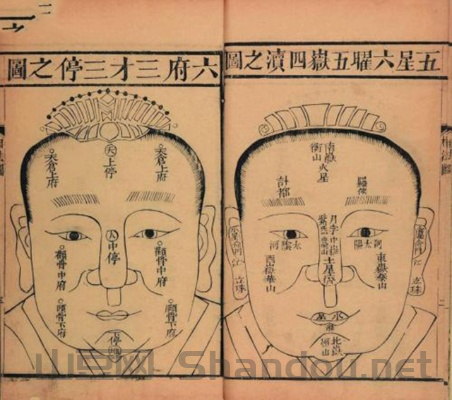 五星六曜五嶽四瀆之圖
南嶽衡山
火星
羅㬋
計都
月孛
太陽
太陰
河
東嶽泰山
西嶽華山
土星
水
北嶽恒山
六府三才三停之圖
天上停
天倉上府
天倉上府
人中停
顴骨中府
顴骨中府
頤骨下府
頤骨下府
山豆网 Shandou.net